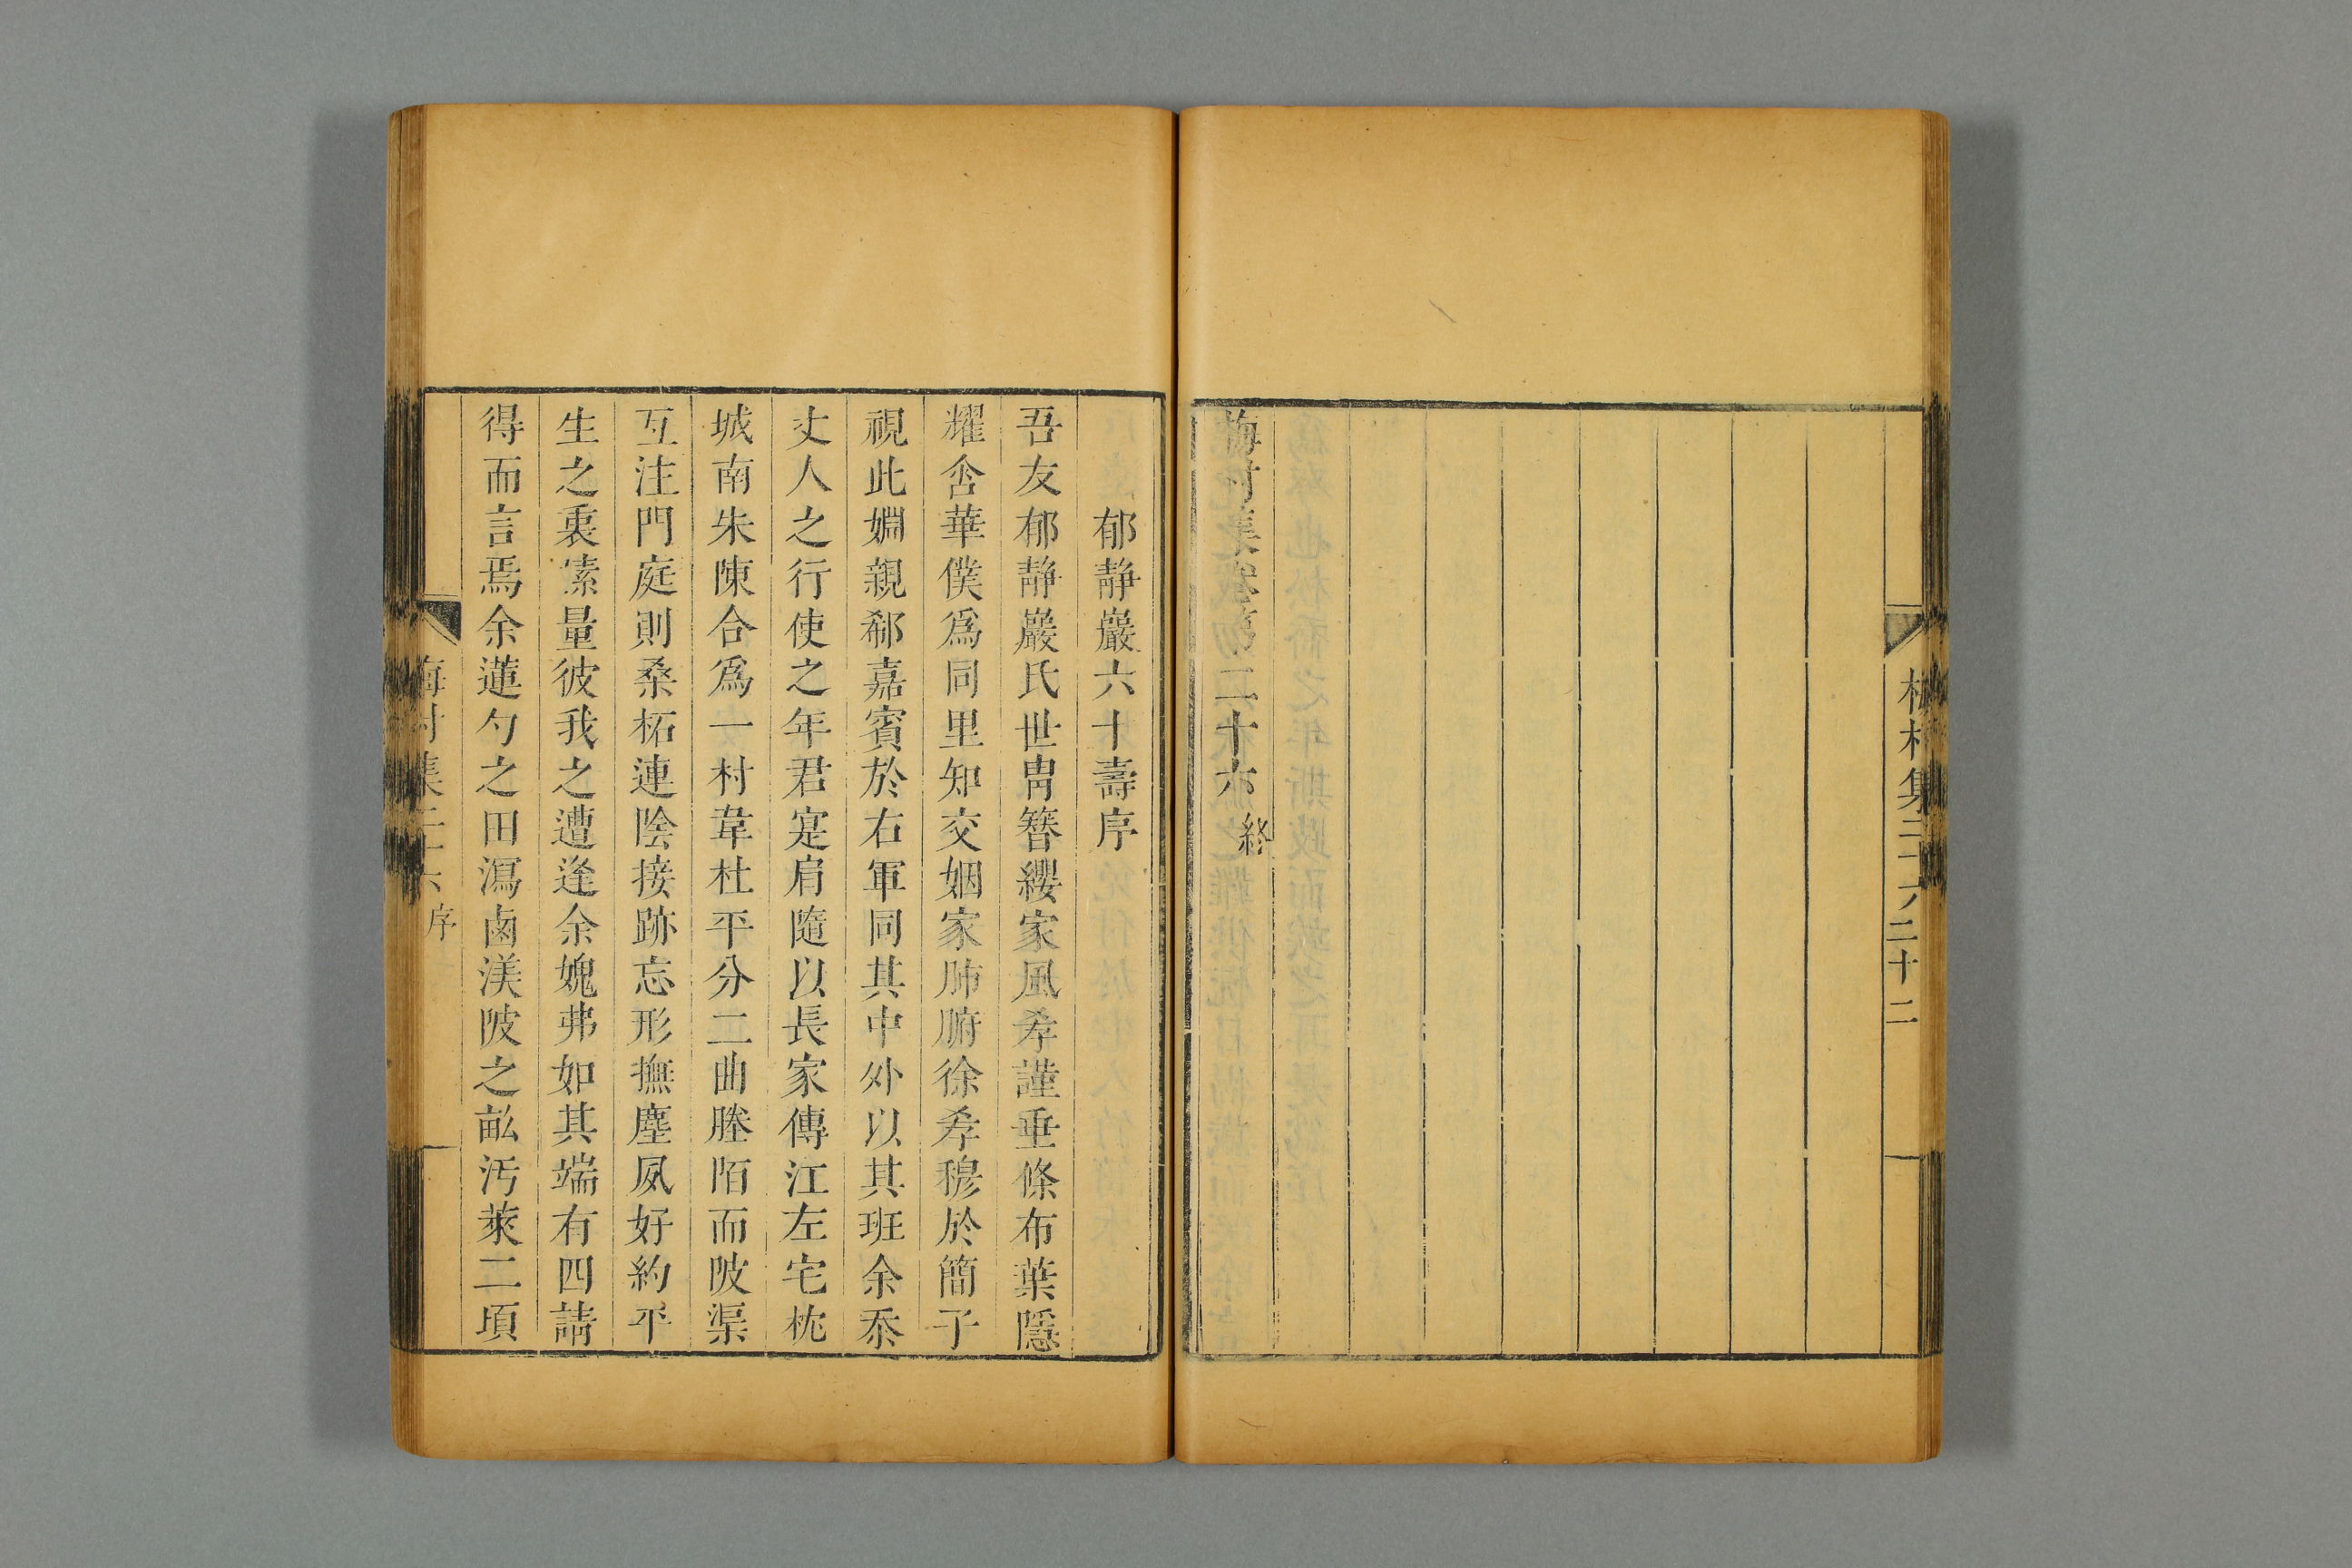 梅村集二十六 二十二
梅村集卷第二十六 終
郁靜巖六十壽序
吾友郁靜巖氏世胄簪纓家風孝謹垂條布葉隱
耀含華僕爲同里知交姻家肺腑徐孝穆於簡子
視此婣親郗嘉賓於右軍同其中外以其班余忝
丈人之行使之年君寔肩隨以長家傳江左宅枕
城南朱陳合爲一村韋杜平分二曲塍陌而陂渠
互注門庭則桑柘連陰接跡忘形撫塵夙好約平
生之裏素量彼我之遭逢余媿弗如其端有四請
得而言焉余蓮勺之田瀉鹵渼陂之畝汚萊二項
梅村集二十六 序